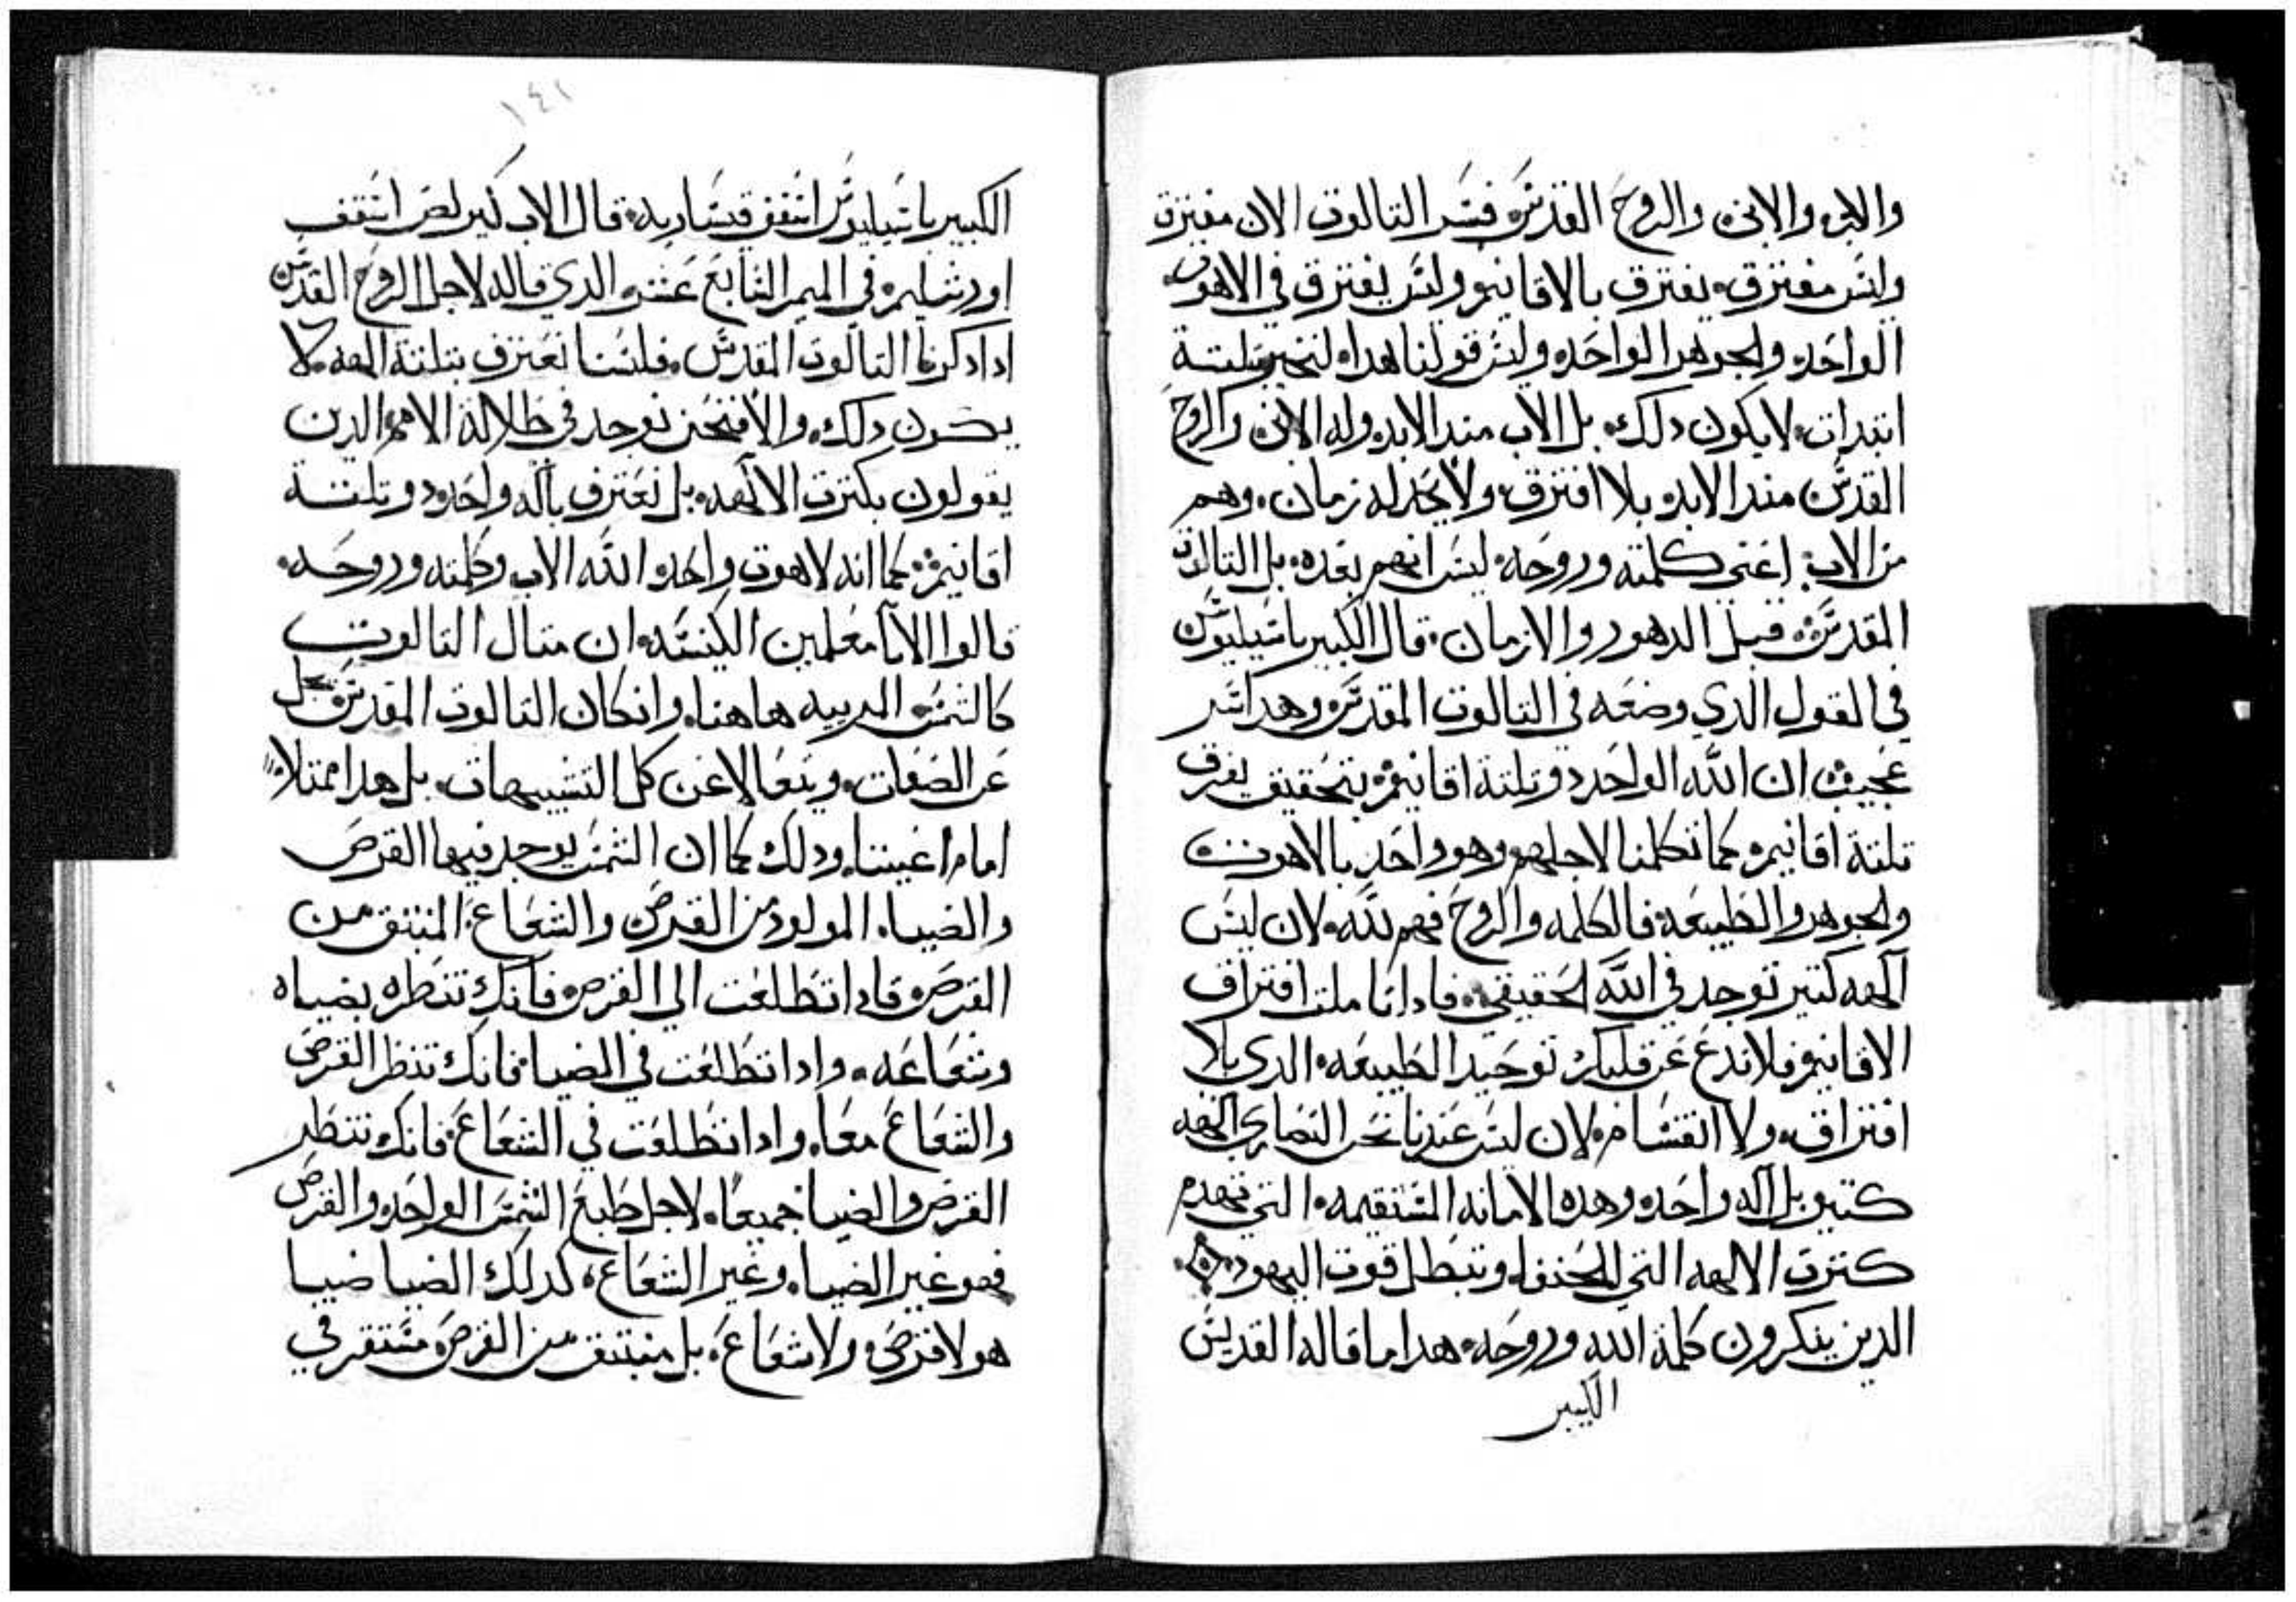 والابن والابن والروح القدس فسر التالوت الان مفترق
وليس مفترق يفترق بالاقانيم وليس يفترق في الاهوت
الواحد والجوهر الواحد وليس قولنا هدا لنخبر بتلتة
ابتدات لا يكون دلك بل الاب مند الابد وله الابن والروح
القدس مند الابد بلا افترق ولا يحد له زمان وهم
من الاب اعنى كلمته وروحه ليس انهم بعده بل التالوت
المقدس قبل الدهور والازمان قال الكبير باسيليوس
في القول الدي وضعه في التالوت المقدس وهدا سر
عجيب ان الله الواحد دو تلتة اقانيم بتحقيق يعرف
تلتة اقانيم كما تكلمنا لاجلهم وهو واحد بالاهوت
والجوهر والطبيعه فالكلمه والروح فهم لله لان ليس
آلهه كتير توجد في الله الحقيقي فادا تاملت افتراق
الاقانيم فلا تدع عن قلبك توحيد الطبيعه الدي بلا
افتراق ولا انقسام لان ليس عندنا نحن النصارى آلهه
كتير بل آله واحد وهده الامانه المستقيمه التي تهدم
كترت الالهه التي للحنفا وتبطل قوت اليهود
الدين ينكرون كلمة الله وروحه هدا ما قاله القديس
الكبير
١٤١
الكبير باسيليوس اسقف قيساريه قال الاب كيرلص اسقف
اورشليم في الميمر السابع عشر الدي قاله لاجل الروح القدس
ادا دكرنا التالوت المقدس فلسنا نعترف بتلتة الهه لا
يكون دلك والا فنحن نوجد في ظلالة الامم الدين
يقولون بكترت الالهه بل نعترف بآله واحد دو تلتة
اقانيم كما انه لاهوت واحد الله الاب وكلمته وروحه
قالوا الابا معلمين الكنيسه ان متال التالوت
كالشمس المرييه هاهنا وانكان التالوت المقدس يجل
عن الصفات ويتعالا عن كل التشبيهات بل هدا متلا
امام اعيننا ودلك كما ان الشمس يوجد فيها القرص
والضيا المولود من القرص والشعاع المنبتق من
القرص فادا تطلعت الي القرص فانك تنظره بضياه
وشعاعه وادا تطلعت في الضيا فانك تنظر القرص
والشعاع معا وادا تطلعت في الشعاع فانك تنظر
القرص والضيا جميعا لاجل طبع الشمس الواحد والقرص
فهو غير الضيا وغير الشعاع كدلك الضيا ضيا
هو لا قرص ولا شعاع بل منبتق من القرص مستقر في